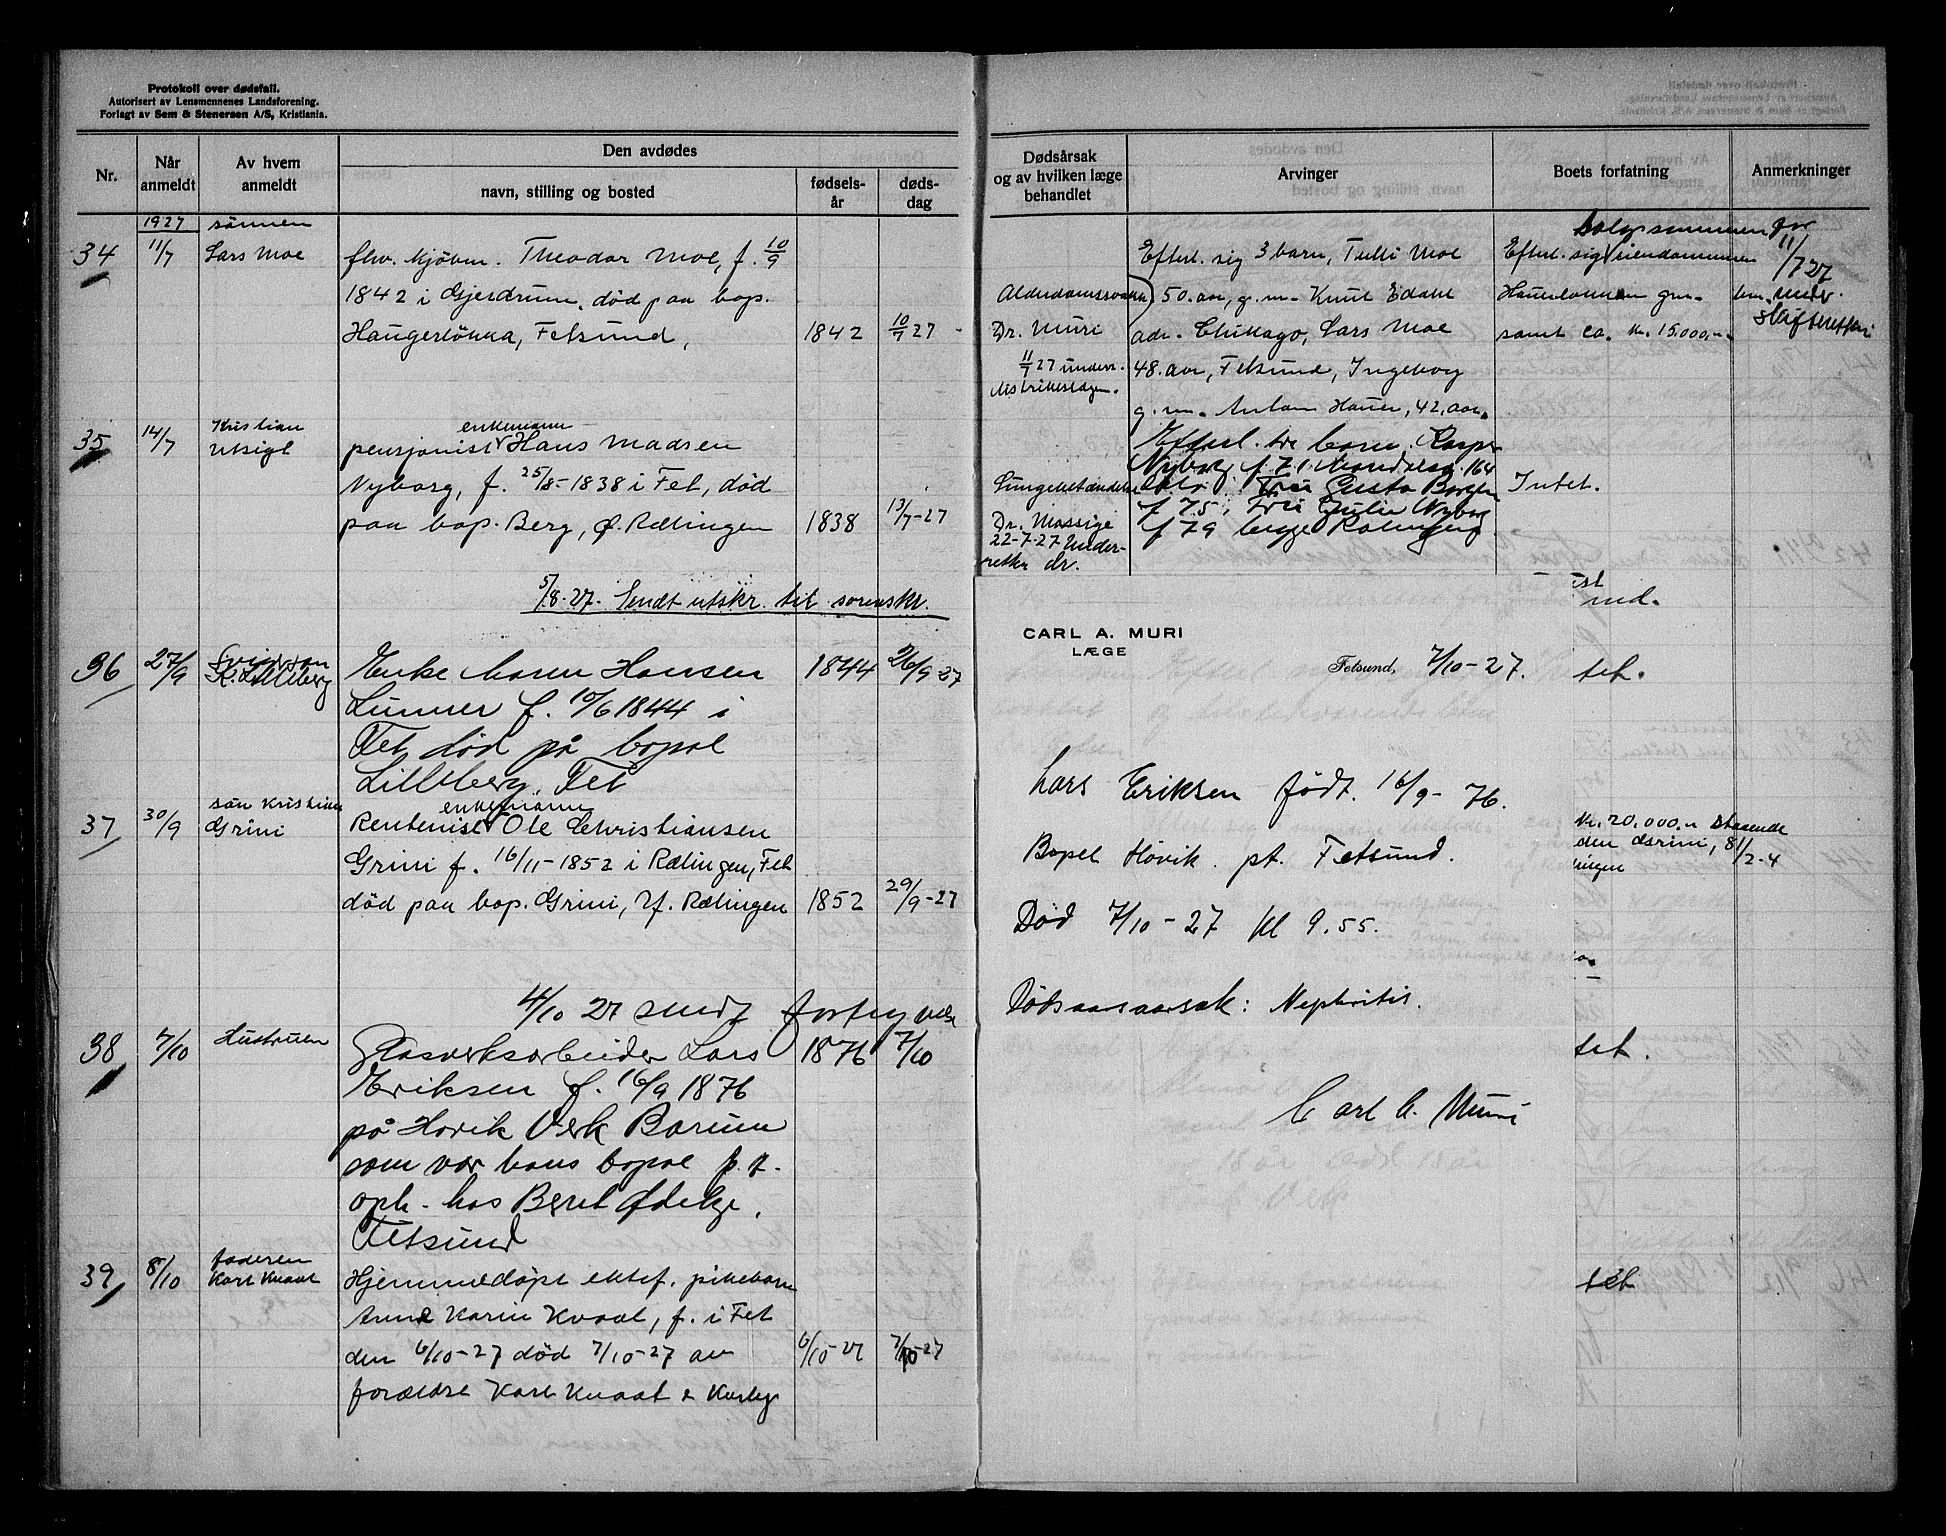 Protokoll over dødsfall.
Autorisert av Lensmennenes Landsforening.
Forlagt av Sem & Stenersen A/S, Kristiania.
Nr.
Når anmeldt
Av hvem anmeldt
Den avdødes
navn, stilling og bosted
fødsels-år
døds-dag
1927 sønnen
34 11/7 Lars Moe
fhv. kjøbm. Theodor Moe, f. 10/9
1842 i Gjerdrum, død paa bop.
Haugerløkka, Fetsund, 1842 10/7 27
35 14/7 Kristian Utsigt
enkemann
pensjonist Hans Madsen
Nyborg, f. 25/8-1838 i Fet, død
paa bop. Berg, Ø. Rælingen 1838 13/7-27
5/8-27. Sendt utskr. til sorenskr.
36 27/9 K. Lilleberg
Enke Maren Hansen 1844 26/9 27
Lunner f. 10/6 1844 i
Fet død på bopæl
Lilleberg, Fet
37 30/9 søn Kristian Grini
enkemann
Rentenist Ole Christiansen
Grini f. 16/11-1852 i Rælingen, Fet
død paa bop. Grini, Y. Rælingen 1852 29/9-27
4/10 27 sendt
38 7/10 Hustruen
Glasverksarbeider Lars 1876 7/10
Eriksen f. 16/9 1876
på Høvik Verk Bærum
som var hans bopæl p.t.
oph. hos Beret Ødelge,
Fetsund
39 8/10 faderen Karl Kvaal
Hjemmedøpt ektef. pikebarn
Anne Karin Kvaal, f. i Fet
den 6/10-27 død 7/10-27 av 6/10-27 7/10-27
forældre Karl Kvaal &
Dødsårsak og av hvilken læge behandlet
Arvinger
Boets forfatning
Anmerkninger
Efterl. sig 3 barn, Tulli Moe
Alderdomssvakhet 50. aar, g.m. Knut Edahl
Dr. Muri adr. Chikago, Lars Moe
11/7 27 underr. 48. aar, Fetsund, Ingeborg
distriktslægen. g.m. Anton Hauer, 42. aar.
Efterl. sig eiendommen
samt ca. kr. 15.000,-
11/7 27
under.
skifteretten
Efterl. tre barn. Kasper
Nyborg f 71.
Lungebetændelse
f 75, Fru Julie Nyborg
Dr. Massige f 79 begge Rælingen
22-7-27 Under-
retta dr.
Intet.
CARL A. MURI
LÆGE
Fetsund, 7/10-27.
Lars Eriksen født. 16/9-76.
Bopel Høvik. pt. Fetsund.
Død 7/10-27 kl 9.55.
Dødsaarsaarsak: Nephritis.
Carl A. Muri
tet.
kr. 20.000.
tet.
tet